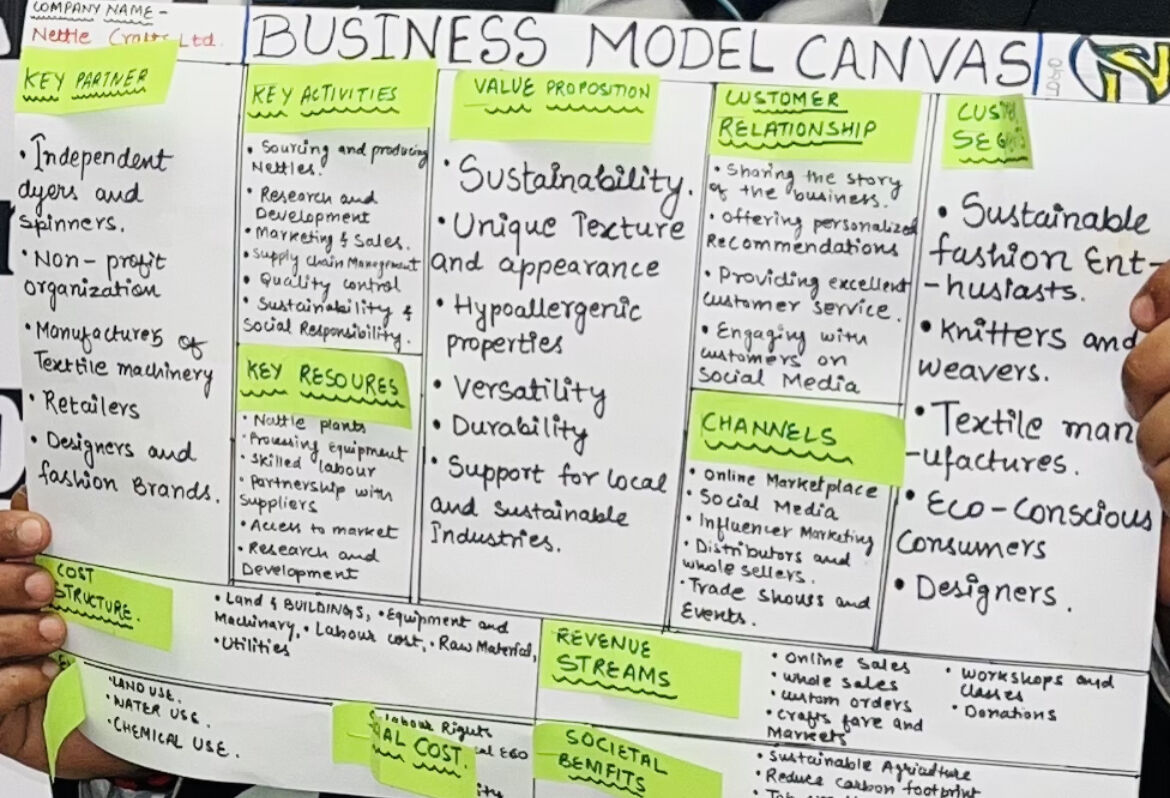 COMPANY NAME -
Nettle Crafts Ltd.
BUSINESS MODEL CANVAS
KEY PARTNER
• Independent
dyers and
spinners.
• Non-profit
organization
• Manufactures of
Textile machinery
• Retailers
• Designers and
fashion Brands.
KEY ACTIVITIES
• Sourcing and producing
Nettles.
• Research and
Development
• Marketing & Sales.
• Supply Chain Management
• Quality control
• Sustainability &
Social Responsibility.
KEY RESOURES
• Nattle plants
• Processing equipment
• Skilled labour
• Partnership with
Suppliers
• Access to market
• Research and
Development
VALUE PROPOSITION
• Sustainability.
• Unique Texture
and appearance
• Hypoallergenic
properties
• Versatility
• Durability
• Support for local
and sustainable
Industries.
CUSTOMER
RELATIONSHIP
• Sharing the story
of the business.
• offering personalized
Recommendations
• Providing excellent
customer service.
• Engaging with
customers on
Social Media
CHANNELS
• online Marketplace
• Social Media
• Influencer Marketing
• Distributors and
whole sellers.
• Trade shows and
Events.
• Sustainable
fashion Ent-
-husiasts.
• Knitters and
weavers.
• Textile man
-ufactures.
• Eco-Conscious
Consumers
• Designers.
COST
STRUCTURE.
• Land & BUILDINGS, • Equipment and
Machinary, • Labour cost, • Raw Material,
• Utilities
REVENUE
STREAMS
• online sales
• whole sales
• custom orders
• crafts fare and
Markets
• workshops and
classes
• Donations
• LAND USE.
• WATER USE.
• CHEMICAL USE.
labour Rights
COST.
SOCIETAL
BENIFITS
• Sustainable Agriculture
• Reduce carbon footprint